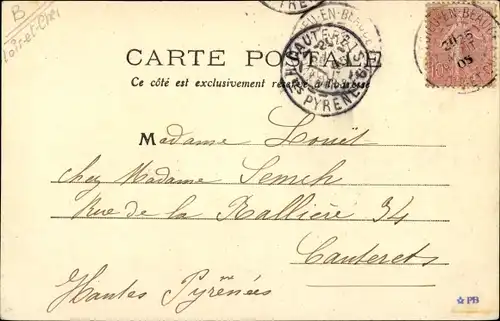 B
Loir-et-Cher
CARTE POSTALE
Ce côté est exclusivement réservé à l'adresse
CAUTERETS
HTES PYRENEES
EN-BEAUCE
03
Madame Louït
chez Madame Semeh
Rue de la Rallière 34
Cauterets
Hautes Pyrénées
PB